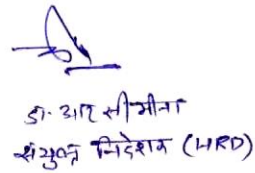 डा. आर सी मीना
संयुक्त निदेशक (HRD)